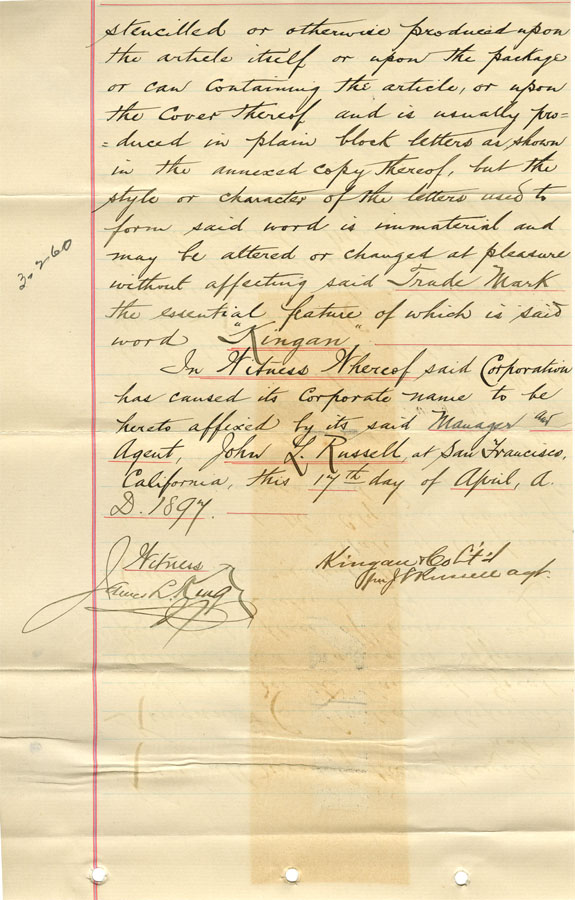 stencilled or otherwise produced upon
the article itself or upon the package
or can containing the article, or upon
the Cover thereof and is usually pro=
=duced in plain block letters as shown
in the annexed copy thereof, but the
style or character of the letters used to
form said word is immaterial and
may be altered or changed at pleasure
without affecting said Trade Mark
the essential feature of which is said
word "Kingan"
In Witness Whereof said Corporation
has caused its Corporate name to be
hereto affixed by its said "Manager and
Agent, John L. Russell, at San Francisco,
California, this 17th day of April, A.
D. 1897.
Witness
James L. King
Kingan & Co Lt'd
per J L Russell agt.
3260